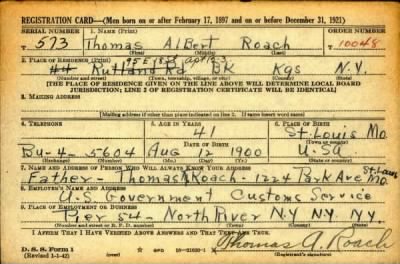 REGISTRATION CARD—(Men born on or after February 17, 1897 and on or before December 31, 1921)
SERIAL NUMBER 1. NAME (Print) ORDER NUMBER
T 573 Thomas Albert Roach 10048
(First) (Middle) (Last)
2. PLACE OF RESIDENCE (Print)
95 E 18 St apt
44 Rutland Rd BK Kgs N.Y.
(Number and street) (Town, township, village, or city) (County) (State)
[THE PLACE OF RESIDENCE GIVEN ON THE LINE ABOVE WILL DETERMINE LOCAL BOARD
JURISDICTION; LINE 2 OF REGISTRATION CERTIFICATE WILL BE IDENTICAL]
3. MAILING ADDRESS
[Mailing address if other than place indicated on line 2. If same insert word same]
4. TELEPHONE 5. AGE IN YEARS 6. PLACE OF BIRTH
41 St. Louis Mo.
DATE OF BIRTH (Town or county)
Bu-4-5604 Aug 12 1900 USA
(Exchange) (Number) (Mo.) (Day) (Yr.) (State or country)
7. NAME AND ADDRESS OF PERSON WHO WILL ALWAYS KNOW YOUR ADDRESS
Father - Thomas Roach - 1224 Park Ave St. Louis Mo.
8. EMPLOYER'S NAME AND ADDRESS
U.S Government Customs Service
9. PLACE OF EMPLOYMENT OR BUSINESS
Pier 54 - North River N.Y N.Y. N.Y.
(Number and street or R. F. D. number) (Town) (County) (State)
I AFFIRM THAT I HAVE VERIFIED ABOVE ANSWERS AND THAT THEY ARE TRUE.
D. S. S. Form 1 GPO 16-21630-1 Thomas A. Roach
(Revised 1-1-42) (over) (Registrant's signature)